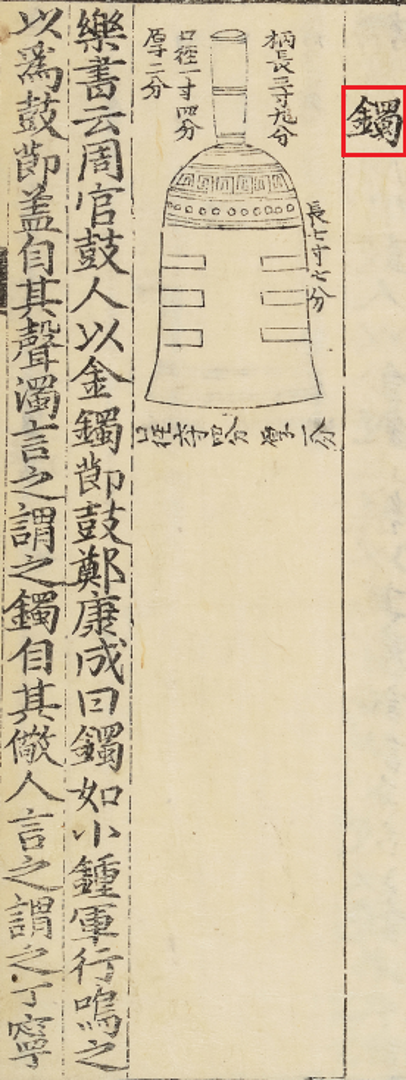 鐲
柄長三寸九分
口徑一寸四分
厚二分
長七寸七分
口徑六寸四分 厚一分
樂書云周官鼓人以金鐲節鼓鄭康成曰鐲如小鍾軍行鳴之
以爲鼓節盖自其聲濁言之謂之鐲自其儆人言之謂之丁寧